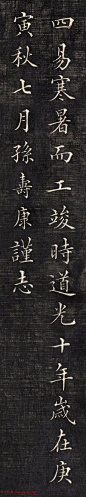 四易寒暑而工竣時道光十年歲在庚
寅秋七月孫壽康謹志